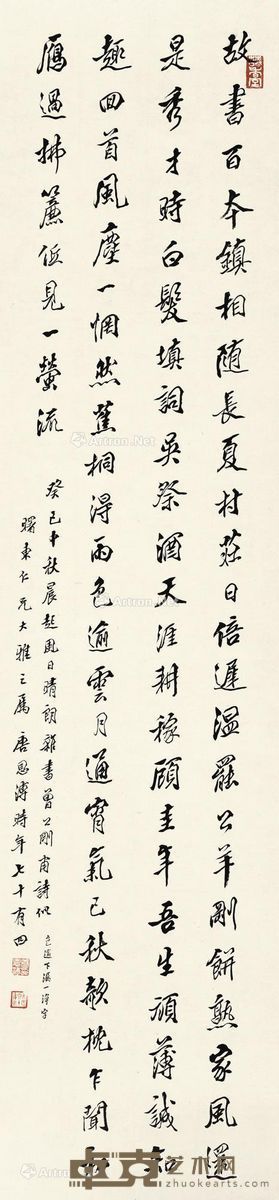 故書百本鎮相隨長夏村莊日倍遲溫罷公羊剛餅熟家風還
是秀才時白髮填詞吳祭酒天涯耕稼顧圭年吾生頑薄誠知
趣回首風塵一惘然蕉桐浥雨色逾雲月通宵氣已秋欹枕乍聞
雁過拂簾低見一螢流
癸巳中秋晨起風日晴朗雜書曾公剛甫詩似 色逾下漏一淨字
曙東仁兄大雅之屬 唐恩溥時年七十有四
Artron.Net
卓克艺术网
zhuokearts.com